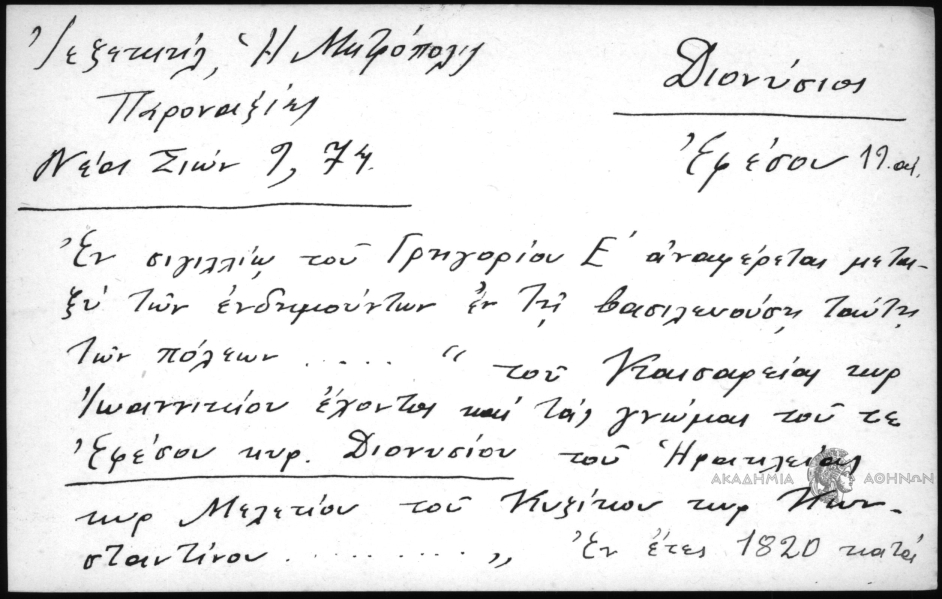 Ἰεζεκιήλ, Ἡ Μητρόπολις
Παροναξίας
Νέα Σιών 9, 74.
Διονύσιος
Ἐφέσου 19. αἰ.
Ἐν σιγιλλίῳ τοῦ Γρηγορίου Ε΄ ἀναφέρεται μετα-
ξὺ τῶν ἐνδημούντων ἐν τῇ βασιλευούσῃ ταύτῃ
τῶν πόλεων ..... " τοῦ Καισαρείας κυρ
Ἰωαννικίου ἔχοντος καὶ τὰς γνώμας τοῦ τε
Ἐφέσου κυρ. Διονυσίου τοῦ Ἡρακλείας
ΑΚΑΔΗΜΙΑ ΑΘΗΝΩΝ
κυρ Μελετίου τοῦ Κυζίκου κυρ Κων-
σταντίνου .......... „ Ἐν ἔτει 1820 κατὰ